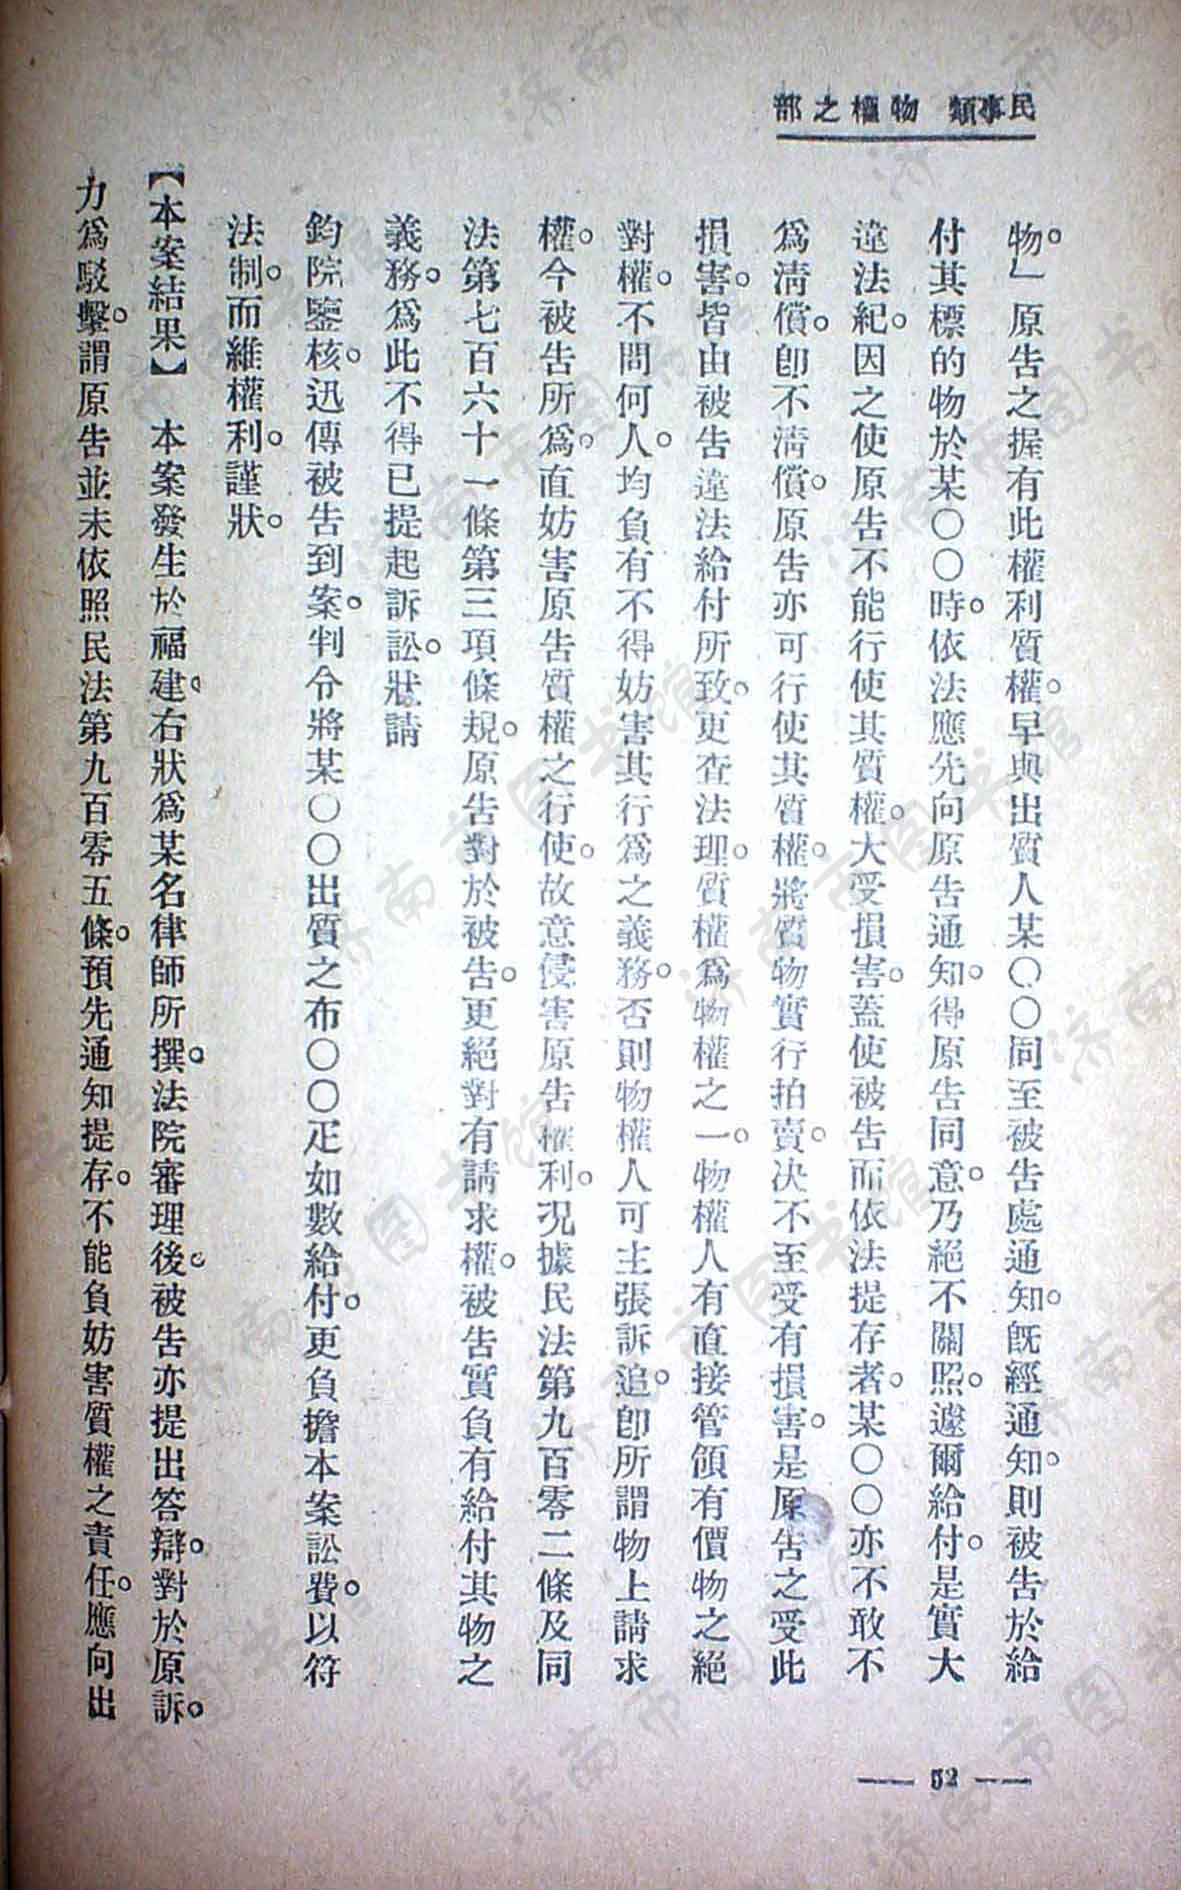 民事類　物權之部
物。」原告之握有此權利質權。早與出質人某〇〇同至被告處通知。既經通知。則被告於給
付其標的物於某〇〇時。依法應先向原告通知。得原告同意。乃絕不關照。遽爾給付。是實大
違法紀。因之使原告不能行使其質權。大受損害。蓋使被告而依法提存者。某〇〇亦不敢不
爲淸償。卽不淸償。原告亦可行使其質權。將質物實行拍賣。决不至受有損害。是原告之受此
損害。皆由被告違法給付所致。更查法理。質權爲物權之一。物權人有直接管領有價物之絕
對權。不問何人。均負有不得妨害其行爲之義務。否則物權人可主張訴追。卽所謂物上請求
權。今被告所爲。直妨害原告質權之行使。故意侵害原告權利。况據民法第九百零二條及同
法第七百六十一條第三項條規。原告對於被告。更絕對有請求權。被告實負有給付其物之
義務。爲此不得已提起訴訟。狀請
鈞院鑒核。迅傳被告到案。判令將某〇〇出質之布〇〇疋如數給付。更負擔本案訟費。以符
法制。而維權利。謹狀。
【本案結果】　本案發生於福建。右狀爲某名律師所撰。法院審理後。被告亦提出答辯。對於原訴。
力爲駁擊。謂原告並未依照民法第九百零五條。預先通知提存。不能負妨害質權之責任。應向出
— 52 —
济南市图书馆